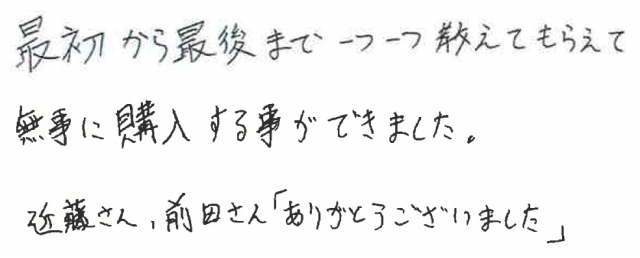 最初から最後まで一つ一つ教えてもらえて
無事に購入する事ができました。
近藤さん、前田さん「ありがとうございました」